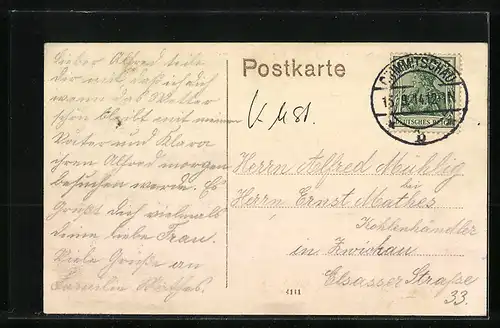 Lieber Alfred teile
dir mit daß ich dich
wenn das Wetter
schön bleibt mit meinem
Vater und Klara
ihren Alfred morgen
besuchen werde. Es
Grüßt dich vielmals
deine liebe Frau.
Viele Grüße an
Familie Mathes.
Postkarte
CRIMMITSCHAU
DEUTSCHES REICH
b
Herrn Alfred Mühlig
bei
Herrn Ernst Mathes
Kohlenhändler
in Zwickau
Elsasser Straße
33.